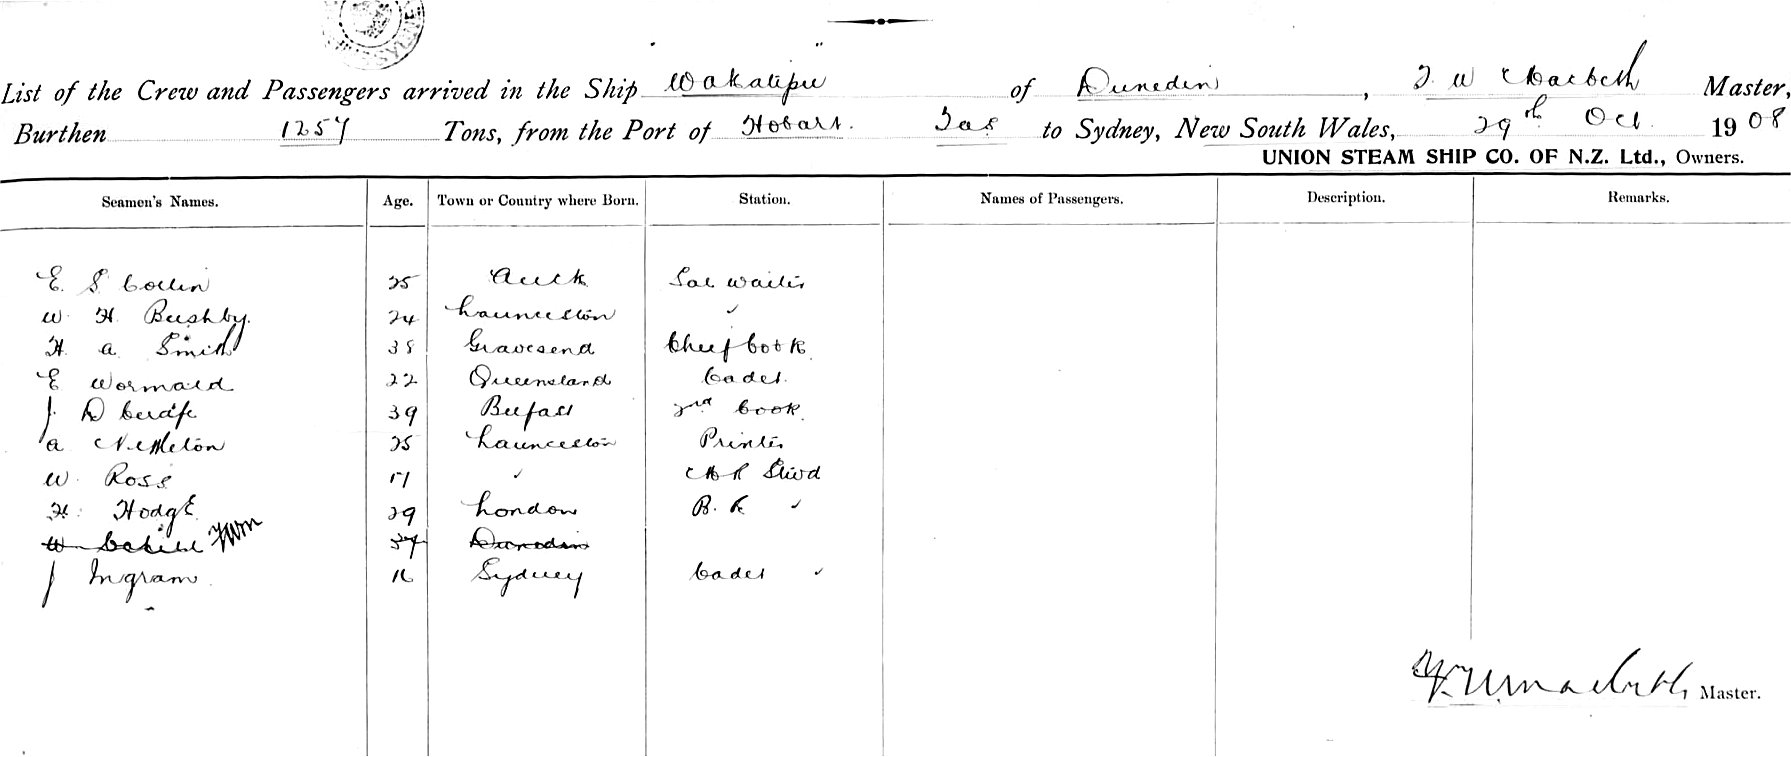 List of the Crew and Passengers arrived in the Ship Wakatipu of Dunedin, J W Macbeth Master,
Burthen 1257 Tons, from the Port of Hobart. Tas to Sydney, New South Wales, 29th Oct. 1908
UNION STEAM SHIP CO. OF N.Z. Ltd., Owners.
Seamen's Names. Age. Town or Country where Born. Station. Names of Passengers. Description. Remarks.
E. S. Collin 25 Auck Sal waiter
W. H. Bushby. 24 Launceston ✓
H. A. Smith 38 Gravesend Cheif Cook
E Wormald 22 Queensland Cadet.
J. D 39 Belfast 2nd Cook
A Nettleton 25 Launceston Printer
W. Ross 17 ✓ Stwd
H. Hodge 29 London B. R ✓
W 37 Dunedin
J Ingram. 16 Sydney Cadet ✓
Master.